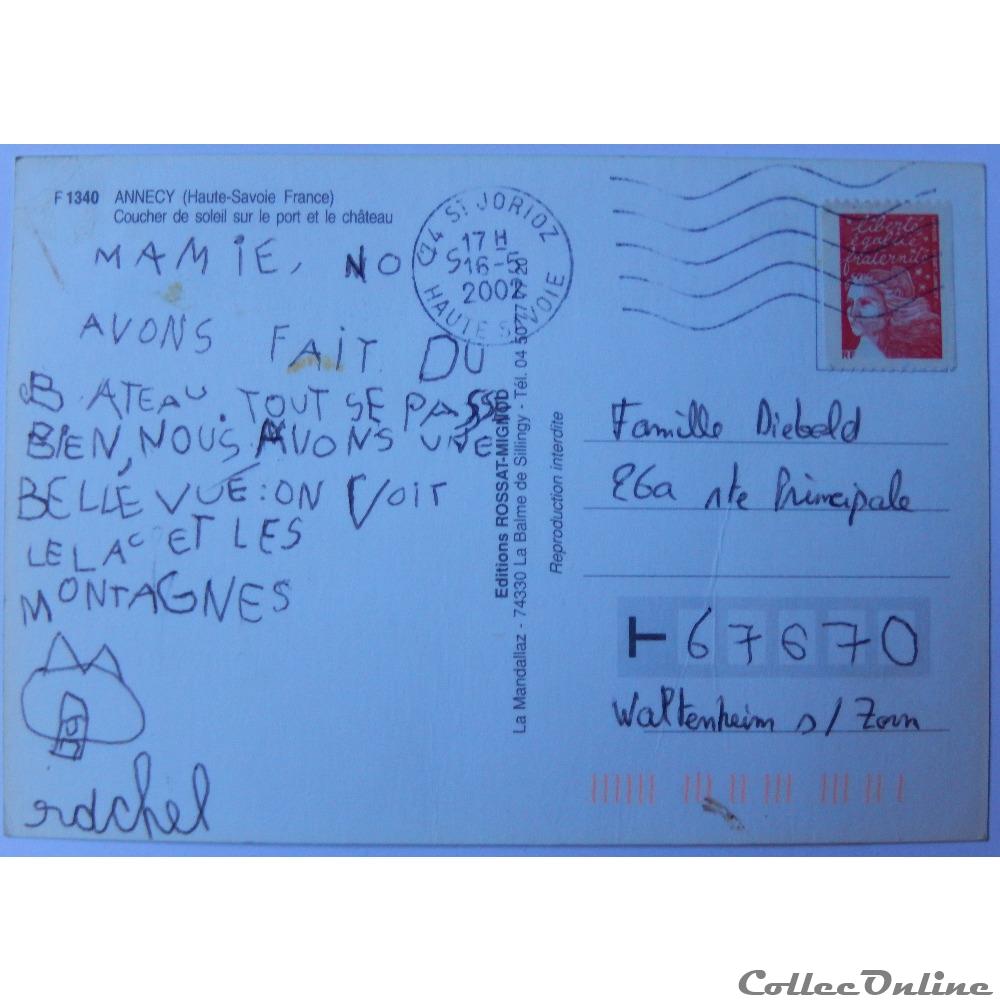 F 1340 ANNECY (Haute-Savoie France)
Coucher de soleil sur le port et le château
MAMIE, NO
AVONS FAIT DU
BATEAU. TOUT SE PASSE
BIEN, NOUS AVONS UNE
BELLE VUE: ON VOIT
LE LAC ET LES
MONTAGNES
rachel
74 ST JORIOZ
17 H
16-5
2002
HAUTE SAVOIE
Editions ROSSAT-MIGNOD
La Mandallaz - 74330 La Balme de Sillingy - Tél. 04 50 77 72 20
Reproduction interdite
liberté
égalité
fraternité
RF
Famille Diebold
26a rte Principale
67670
Waltenheim s/ Zorn
CollecOnline